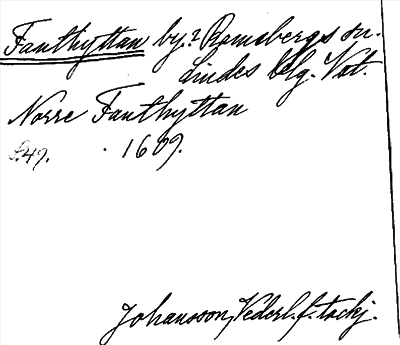 Fanthyttan by? Ramsbergs sn.
Lindes blg. Vstm.
Norre Fanthyttan
s.49. 1609.
Johansson, Nederl. f. tackj.